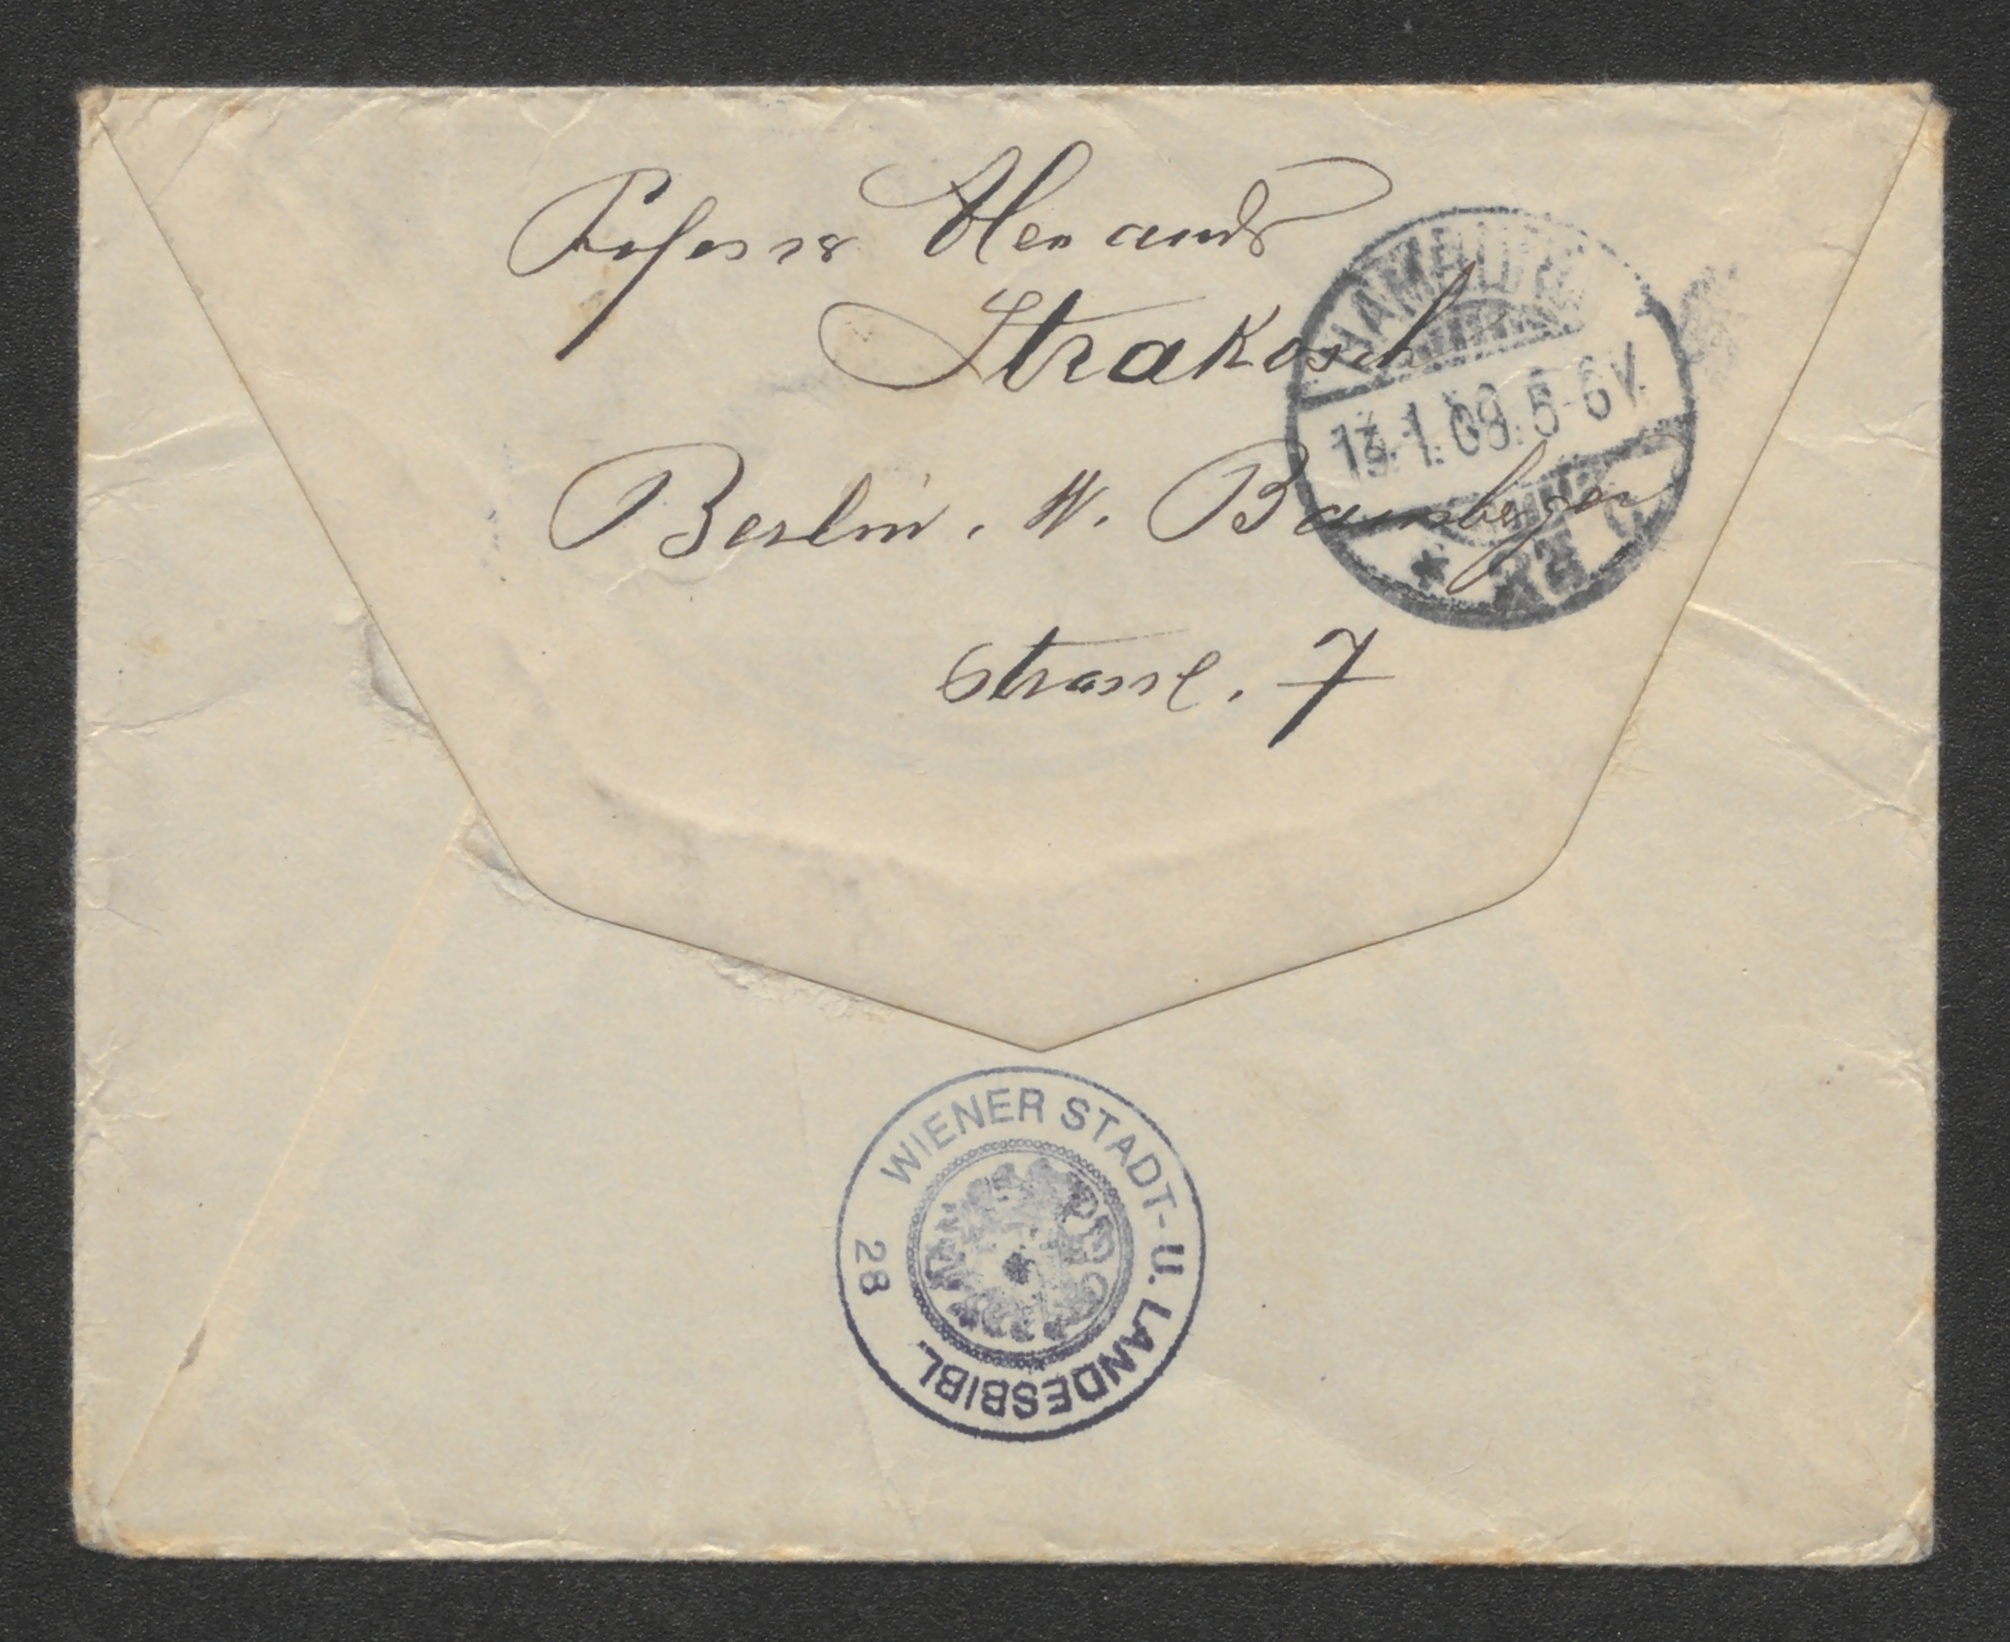 Professor Alexander
Strakosch
Berlin. W. Bamberger
Strasse. 7
HAMBURG
13.1.09. 5-6V.
WIENER STADT-U. LANDESBIBL.
28